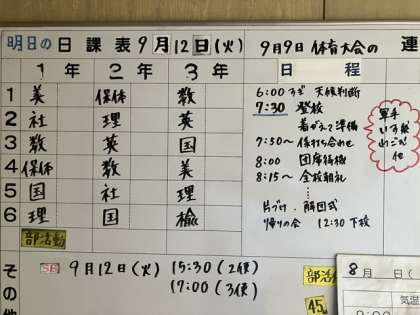 明日の日課表 9月12日(火)
9月9日 体育大会の 連
1年 2年 3年
日程
1 美 保体 数
2 社 理 英
3 数 英 国
4 保体 数 美
5 国 社 理
6 理 国 檢
部活動
6:00すぎ 天候判断
7:30 登校
着がえて準備
7:50〜 係打ち合わせ
8:00 団席待機
8:15〜 全校朝礼
片づけ、解団式
帰りの会 12:30 下校
軍手
いす
他
その他
SC 9月12日(火) 15:30(2便)
17:00(3便)
部活
45
8月 日(
気温